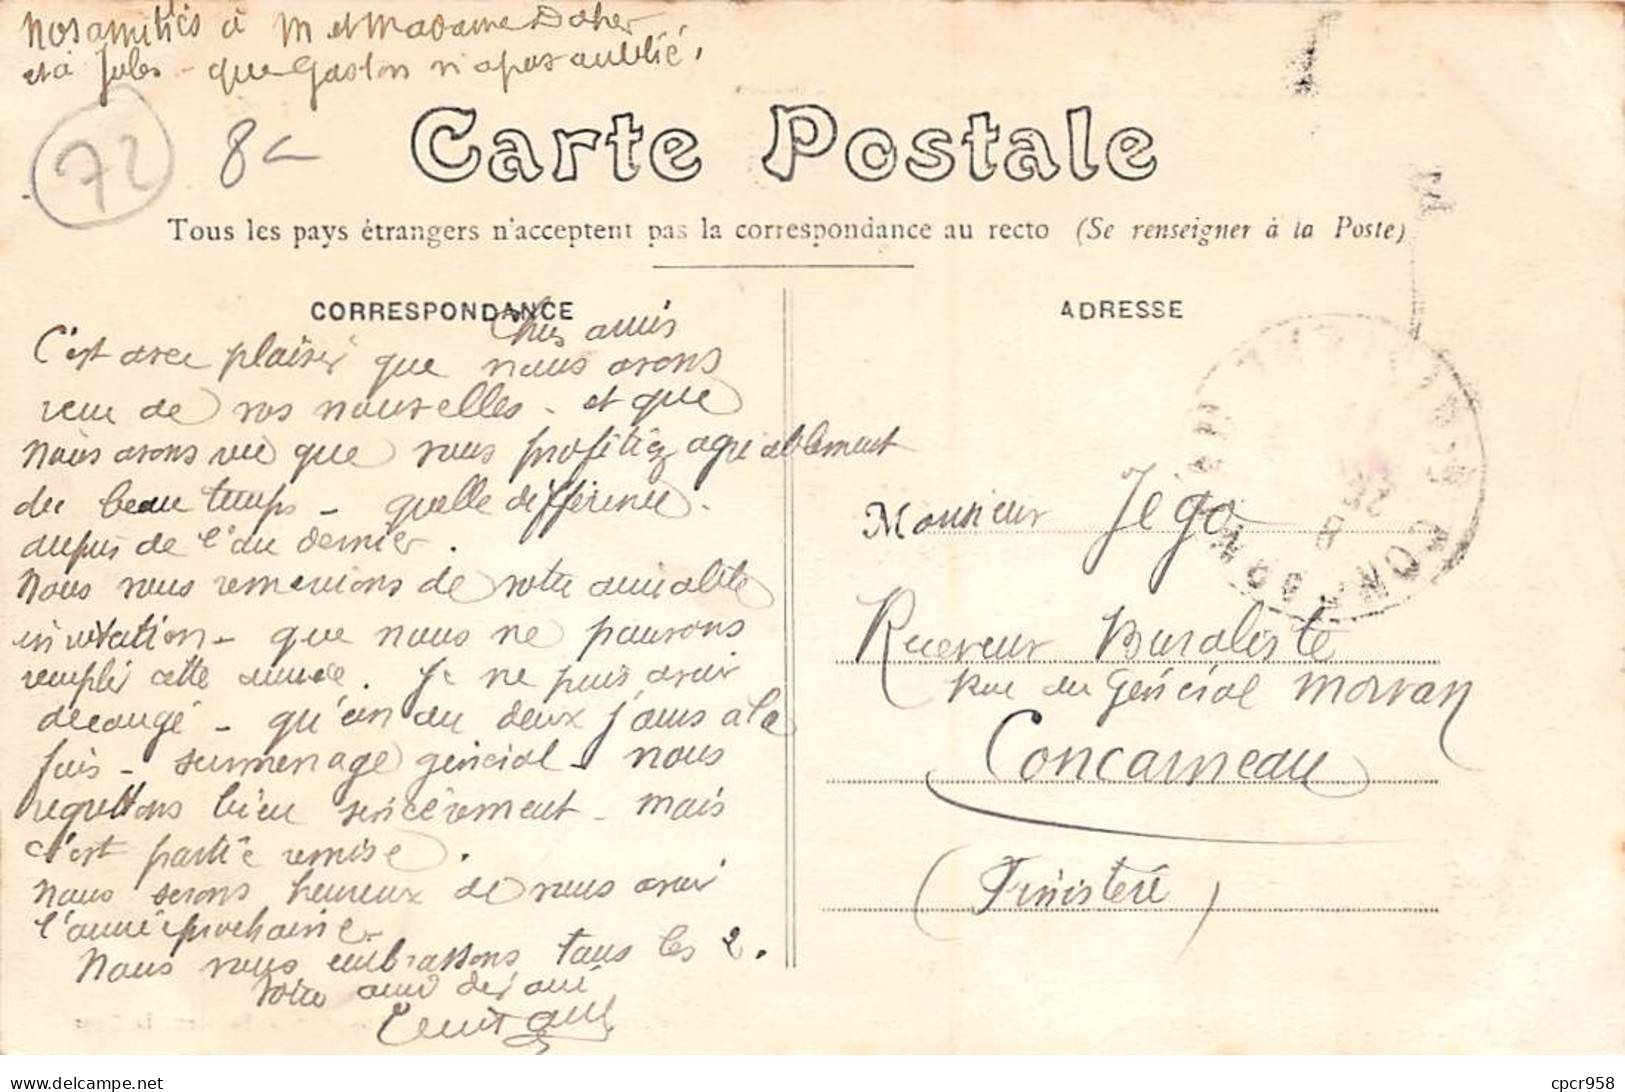 Nos amitiés à M et Madame Daher
et à Jules - que Gaston n'a pas oublié,
72
8
Carte Postale
Tous les pays étrangers n'acceptent pas la correspondance au recto (Se renseigner à la Poste)
CORRESPONDANCE
ADRESSE
Chers amis
C'est avec plaisir que nous avons
reçu de vos nouvelles - et que
nous avons vu que vous profitiez agréablement
du beau temps - quelle différence.
depuis de l'an dernier.
Nous vous remercions de votre aimable
invitation - que nous ne pouvons
remplir cette année. Je ne puis avoir
de congé - qu'un ou deux jours à la
fois - surmenage général - nous
regrettons bien sincèrement - mais
c'est partie remise.
nous serons heureux de vous avoir
l'année prochaine -
Nous vous embrassons tous les 2.
Votre ami dévoué
Monsieur Jégo
Receveur Buraliste
Rue du Général Morvan
Concarneau
(Finistère)
CONCARNEAU
Postale
cpcr958